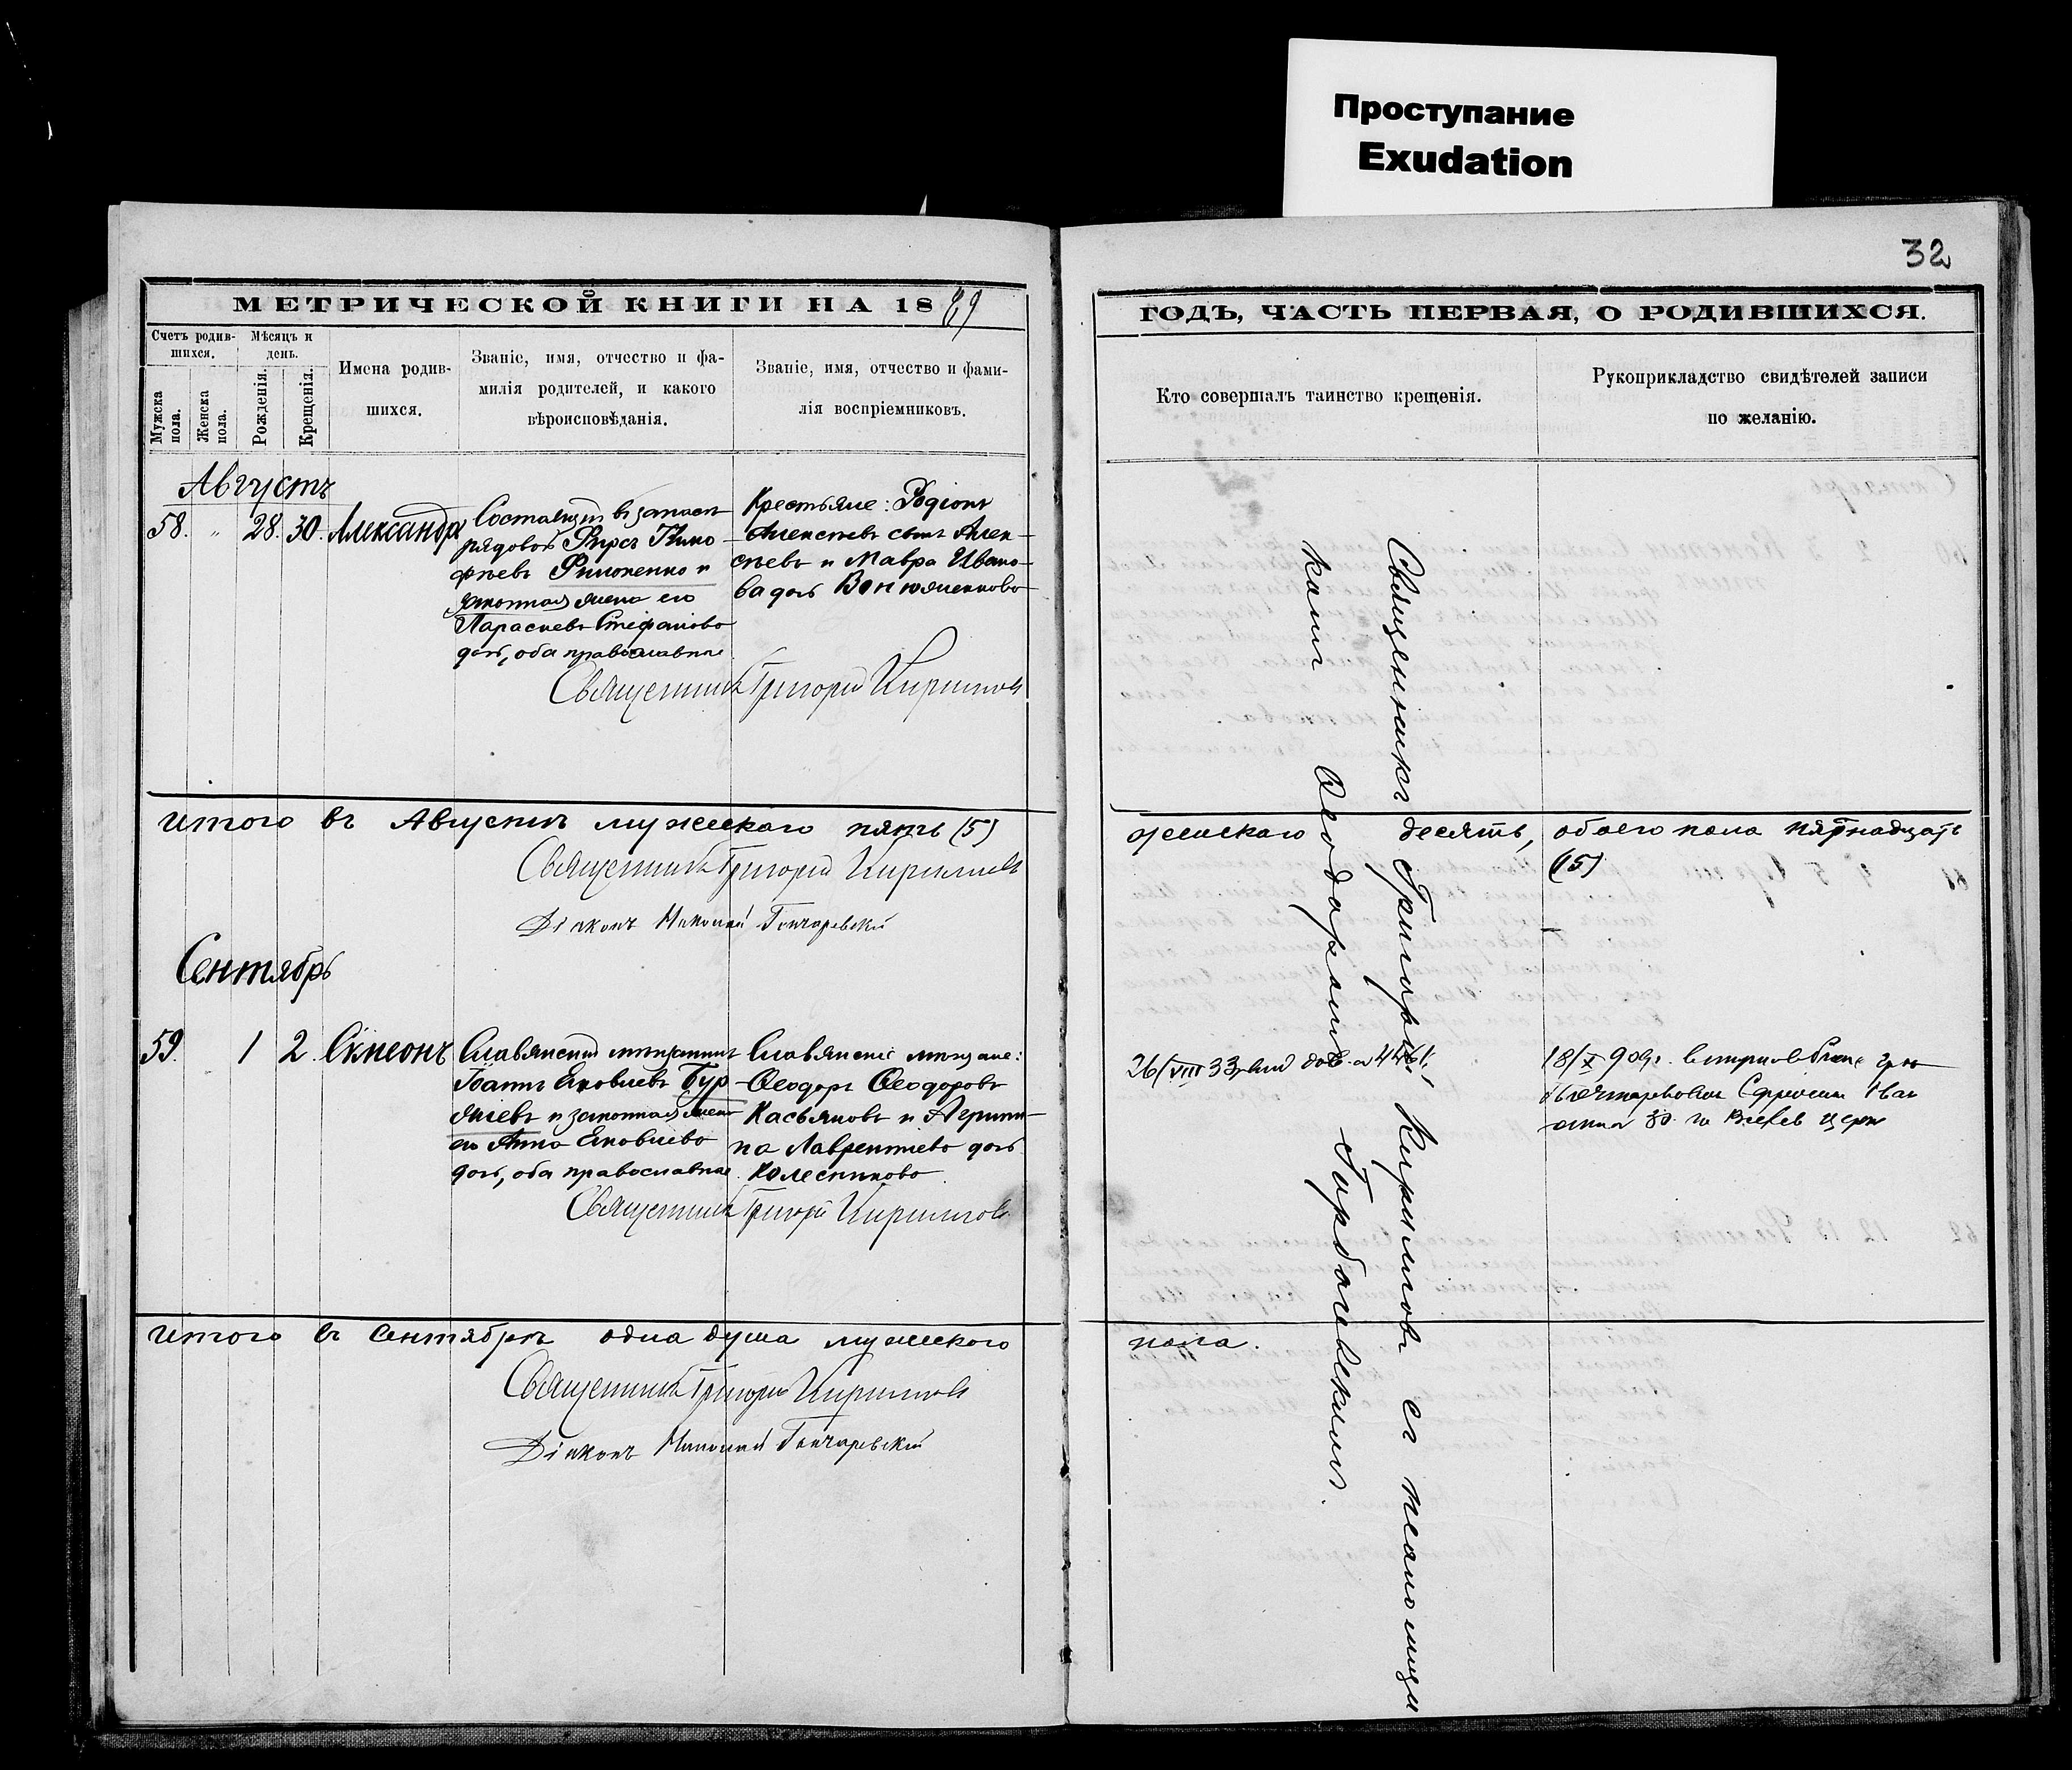 Проступание
Exudation
32
МЕТРИЧЕСКОЙ КНИГИ НА 1889
Счетъ родив-
шихся.
Мѣсяцъ и
день.
Мужска
пола.
Женска
пола.
Рожденія.
Крещенія.
Имена родив-
шихся.
Званіе, имя, отчество и фа-
милія родителей, и какого
вѣроисповѣданія.
Званіе, имя, отчество и фами-
лія воспріемниковъ.
Августъ
58. " 28. 30. Александръ
Состоящій въ запасѣ
рядовой Фирсъ Тимо-
фѣевъ Филоненко и
законная жена его
Параскева Стефанова
дочь, оба православные
Крестьяне: Родіонъ
Алексѣевъ сынъ Алек-
сѣевъ и Мавра Ивано-
ва дочь
Священникъ Григорій Кирилловъ
Итого въ Августѣ мужескаго пять (5)
Священникъ Григорій Кирилловъ
Діаконъ Николай Гончаревскій
Сентябрь
59. 1 2. Симеонъ
Славянскій мѣщанинъ
Іоаннъ Яковлевъ Бур-
лаевъ и законная жена
его Анна Яковлева
дочь, оба православные
Славянскіе мѣщане:
Ѳеодоръ Ѳеодоровъ
Касьяновъ и Агриппи-
на Лаврентіева дочь
Колесникова.
Священникъ Григорій Кирилловъ
Итого въ Сентябрѣ одна душа мужескаго
Священникъ Григорій Кирилловъ
Діаконъ Николай Гончаревскій
ГОДЪ, ЧАСТЬ ПЕРВАЯ, О РОДИВШИХСЯ.
Кто совершалъ таинство крещенія.
Рукоприкладство свидѣтелей записи
по желанію.
Священникъ Григорій Кирилловъ съ псаломщи
комъ Ѳеодоромъ
женскаго десять, обоего пола пятнадцать
(15)
26/VIII 33
18/X 909г.
пола.